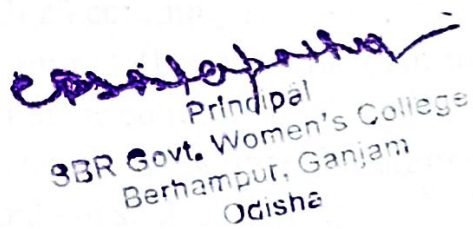 Principal
SBR Govt. Women's College
Berhampur, Ganjam
Odisha